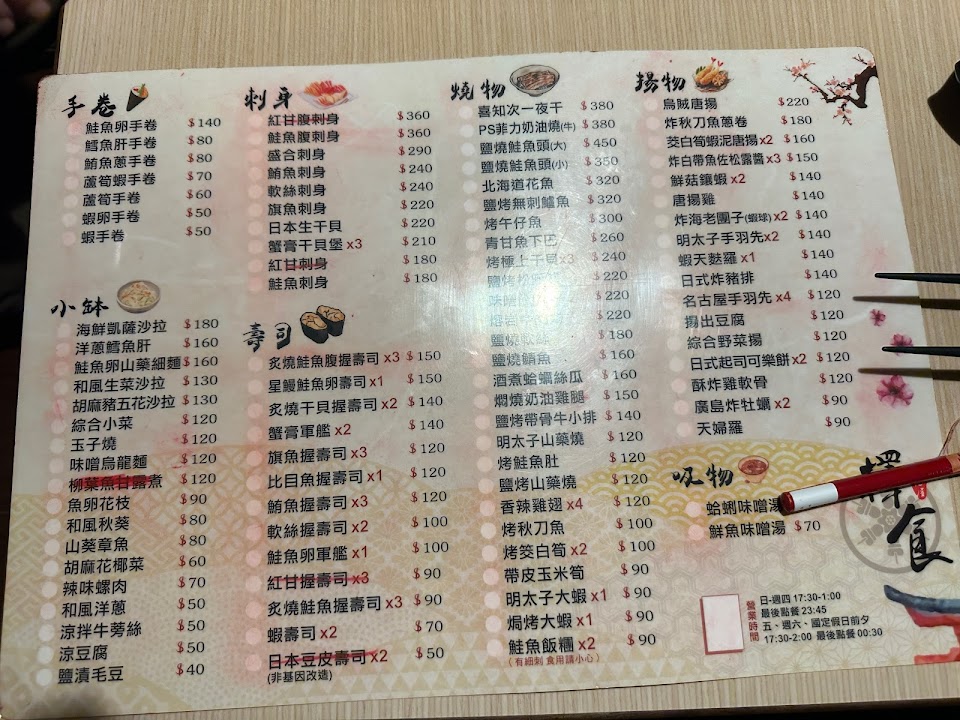 手卷
鮭魚卵手卷 $140
鱈魚肝手卷 $80
鮪魚蔥手卷 $80
蘆筍蝦手卷 $70
蘆筍手卷 $60
蝦卵手卷 $50
蝦手卷 $50
小缽
海鮮凱薩沙拉 $180
洋蔥鱈魚肝 $160
鮭魚卵山藥細麵 $160
和風生菜沙拉 $130
胡麻豬五花沙拉 $130
綜合小菜 $120
玉子燒 $120
味噌烏龍麵 $120
柳葉魚甘露煮 $120
魚卵花枝 $90
和風秋葵 $80
山葵章魚 $80
胡麻花椰菜 $60
辣味螺肉 $70
和風洋蔥 $50
涼拌牛蒡絲 $50
涼豆腐 $50
鹽漬毛豆 $40
刺身
紅甘腹刺身 $360
鮭魚腹刺身 $360
盛合刺身 $290
鮪魚刺身 $240
軟絲刺身 $240
旗魚刺身 $220
日本生干貝 $220
蟹膏干貝堡 x3 $210
紅甘刺身 $180
鮭魚刺身 $180
壽司
炙燒鮭魚腹握壽司 x3 $150
星鰻鮭魚卵壽司 x1 $150
炙燒干貝握壽司 x2 $140
蟹膏軍艦 x2 $140
旗魚握壽司 x3 $120
比目魚握壽司 x1 $120
鮪魚握壽司 x3 $120
軟絲握壽司 x2 $100
鮭魚卵軍艦 x1 $100
紅甘握壽司 x3 $90
炙燒鮭魚握壽司 x3 $90
蝦壽司 x2 $70
日本豆皮壽司 x2 $50
(非基因改造)
燒物
喜知次一夜干 $380
PS菲力奶油燒(牛) $380
鹽燒鮭魚頭(大) $450
鹽燒鮭魚頭(小) $350
北海道花魚 $320
鹽烤無刺鱸魚 $320
烤午仔魚 $300
青甘魚下巴 $260
烤極上干貝 x3 $240
鹽烤松 $220
味噌 $220
$220
鹽燒軟 $180
鹽燒鯖魚 $160
酒煮蛤蠣絲瓜 $160
燜燒奶油雞腿 $150
鹽烤帶骨牛小排 $140
明太子山藥燒 $120
烤鮭魚肚 $120
鹽烤山藥燒 $120
香辣雞翅 x4 $120
烤秋刀魚 $100
烤筊白筍 x2 $100
帶皮玉米筍 $90
明太子大蝦 x1 $90
焗烤大蝦 x1 $90
鮭魚飯糰 x2 $90
(有細刺 食用請小心)
揚物
烏賊唐揚 $220
炸秋刀魚蔥卷 $180
茭白筍蝦泥唐揚x2 $160
炸白帶魚佐松露醬 x3 $150
鮮菇鑲蝦 x2 $140
唐揚雞 $140
炸海老團子(蝦球)x2 $140
明太子手羽先x2 $140
蝦天麩羅 x1 $140
日式炸豬排 $140
名古屋手羽先 x4 $120
揚出豆腐 $120
綜合野菜揚 $120
日式起司可樂餅 x2 $120
酥炸雞軟骨 $120
廣島炸牡蠣 x2 $90
天婦羅 $90
吸物
蛤蜊味噌湯
鮮魚味噌湯 $70
擇食
營業時間
日-週四 17:30-1:00
最後點餐 23:45
五、週六、國定假日前夕
17:30-2:00 最後點餐 00:30